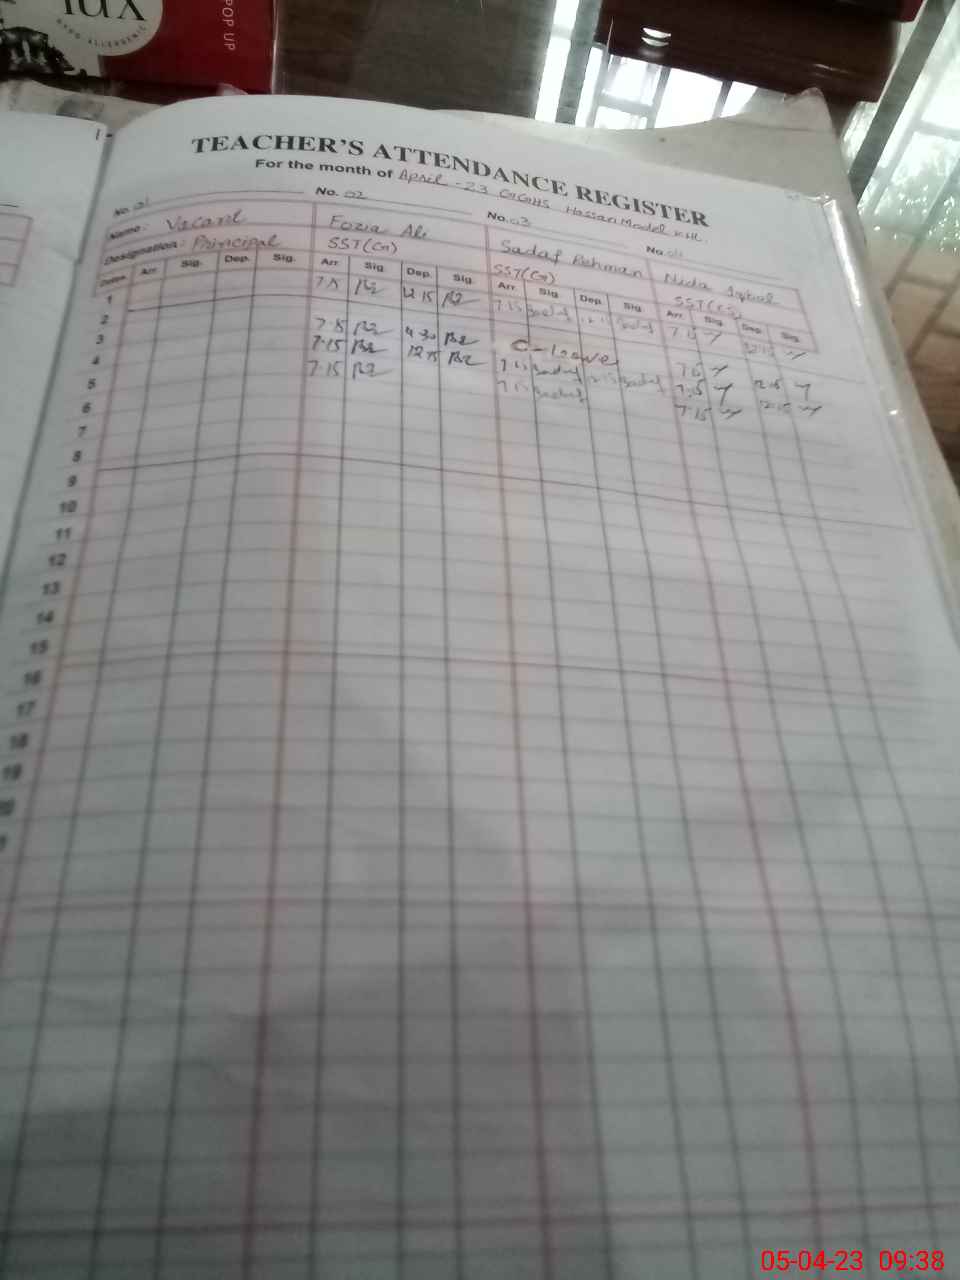 lux
HYPO ALLERGENIC
POP UP
TEACHER'S ATTENDANCE REGISTER
For the month of April -23 GGHS Hassan Model KHI.
No. 01 No. 02 No. 03 No. 04
Name: Vacant Fozia Ali Sadaf Rehman Nida Iqbal
Designation: Principal SST(G) SST(G)
Dates Arr. Sig. Dep. Sig. Arr. Sig. Dep. Sig. Arr. Sig. Dep. Sig. Arr. Sig. Dep. Sig.
1 7.15 12.15 7.15 Sadaf 12.15 Sadaf 7.15 12.15
2
3 7.15 4.30 C-leave 7.15 12.15
4 7.15 12.15 7.15 Sadaf 12.15 Sadaf 7.15 12.15
5 7.15 7.15 Sadaf 7.15
6
7
8
9
10
11
12
13
14
15
16
17
18
19
05-04-23 09:38